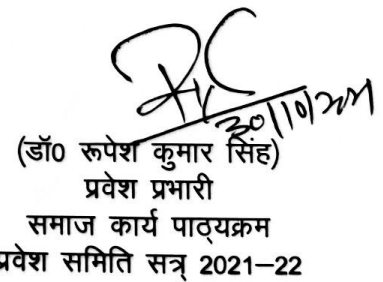 ३०/१०/२०२१
(डॉ0 रूपेश कुमार सिंह)
प्रवेश प्रभारी
समाज कार्य पाठ्यक्रम
प्रवेश समिति सत्र् 2021–22